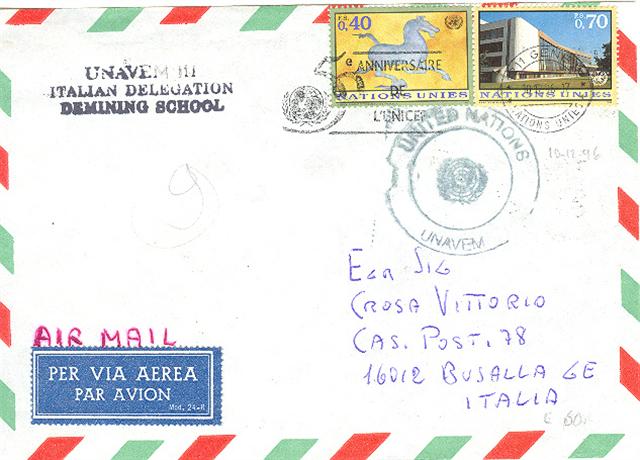 UNAVEM III
ITALIAN DELEGATION
DEMINING SCHOOL
F.S. 0,40
NATIONS UNIES
F.S. 0,70
NATIONS UNIES
e ANNIVERSAIRE
DE
L'UNICEF
NATIONS UNIES
UNITED NATIONS
UNAVEM
10-12-96
9
Egr Sig
CROSA VITTORIO
CAS. POST. 78
16012 BUSALLA GE
ITALIA
AIR MAIL
PER VIA AEREA
PAR AVION
Mod. 24-R